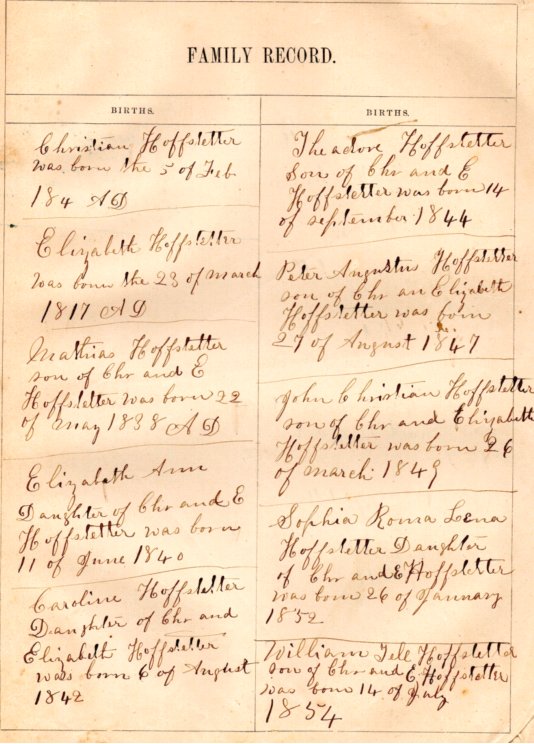 FAMILY RECORD.
BIRTHS.
Christian Hoffstetter
was born the 5 of Feb
184 AD
Elizabeth Hoffstetter
was born the 23 of march
1817 AD
Mathias Hoffstetter
son of Chr and E
Hoffstetter was born 22
of may 1838 AD
Elizabeth Ann
Daughter of Chr and E
Hoffstetter was born
11 of June 1840
Caroline Hoffstetter
Daughter of Chr and
Elizabeth Hoffstetter
was born 6 of August
1842
BIRTHS.
Theadore Hoffstetter
Son of Chr and E
Hoffstetter was born 14
of september 1844
Peter Angustus Hoffstetter
son of Chr an Elizabeth
Hoffstetter was born
27 of August 1847
John Christian Hoffstetter
son of Chr and Elizabeth
Hoffstetter was born 26
of march 1849
Sophia Roma Lena
Hoffstetter Daughter
of Chr and E Hoffstetter
was born 26 of January
1852
William Tell Hoffstetter
son of Chr and E. Hoffstetter
was born 14 of July
1854